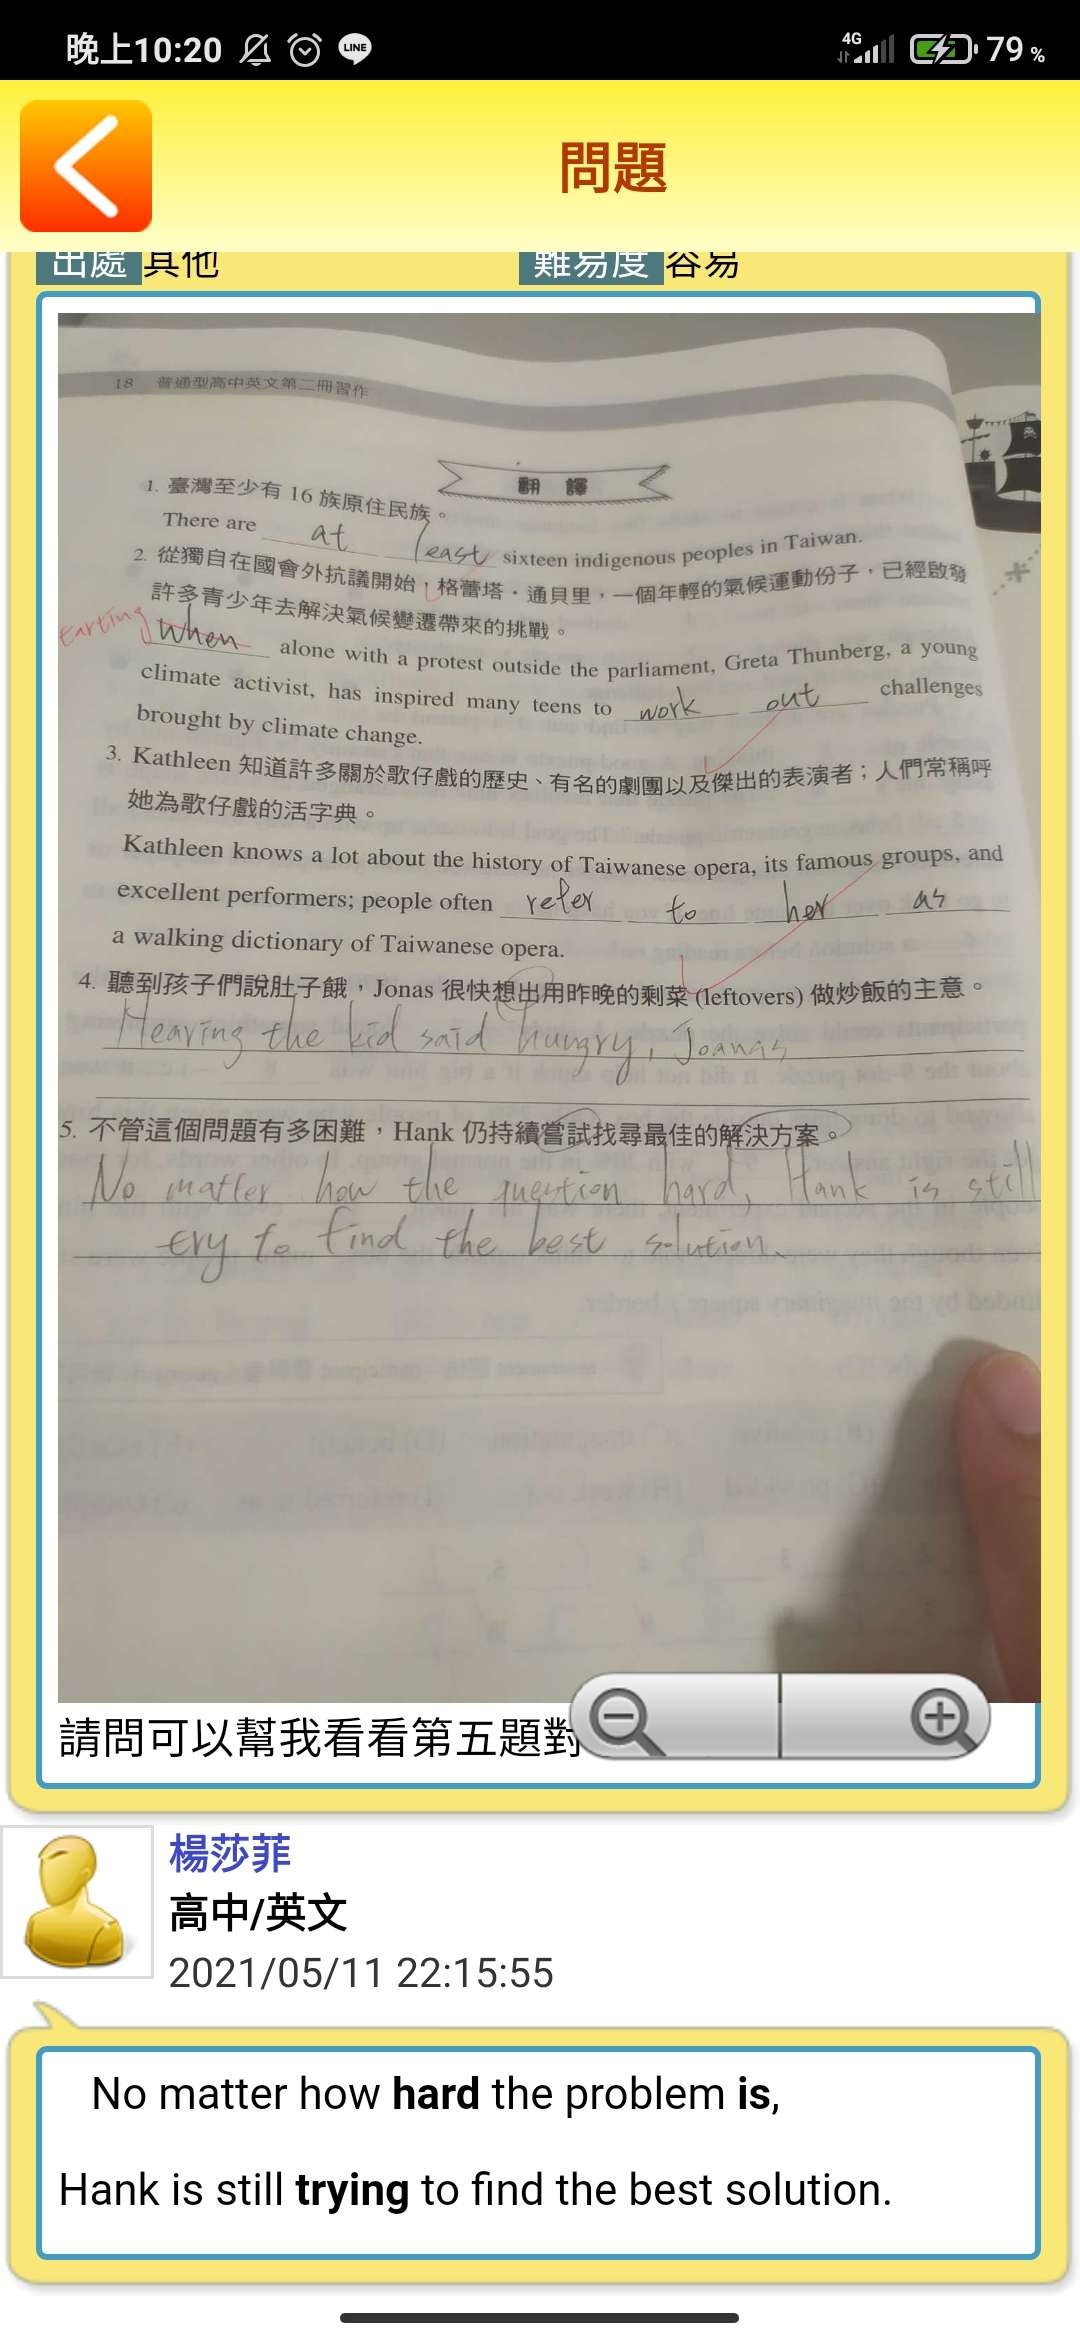 晚上10:20 LINE 4G 79 %
問題
出處 其他 難易度 容易
18 普通型高中英文第二冊習作
翻 譯
1. 臺灣至少有 16 族原住民族。
There are at least sixteen indigenous peoples in Taiwan.
2. 從獨自在國會外抗議開始，格蕾塔・通貝里，一個年輕的氣候運動份子，已經啟發
許多青少年去解決氣候變遷帶來的挑戰。
tarting When alone with a protest outside the parliament, Greta Thunberg, a young
climate activist, has inspired many teens to work out challenges
brought by climate change.
3. Kathleen 知道許多關於歌仔戲的歷史、有名的劇團以及傑出的表演者；人們常稱呼
她為歌仔戲的活字典。
Kathleen knows a lot about the history of Taiwanese opera, its famous groups, and
excellent performers; people often refer to her as
a walking dictionary of Taiwanese opera.
4. 聽到孩子們說肚子餓，Jonas 很快想出用昨晚的剩菜 (leftovers) 做炒飯的主意。
Hearing the kid said hungry, Joanas
5. 不管這個問題有多困難，Hank 仍持續嘗試找尋最佳的解決方案。
No matter how the question hard, Hank is still
try to find the best solution.
請問可以幫我看看第五題對
楊莎菲
高中/英文
2021/05/11 22:15:55
No matter how hard the problem is,
Hank is still trying to find the best solution.